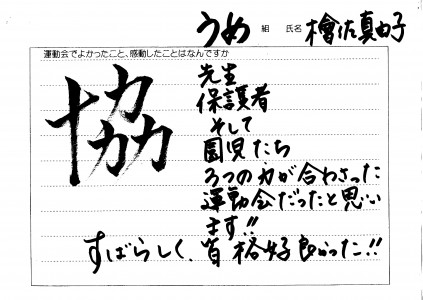 うめ 組 氏名 檜佐真由子
運動会でよかったこと、感動したことはなんですか
協
先生
保護者
そして
園児たち
3つの力が合わさった
運動会だったと思い
ます!!
すばらしく、皆 格好良かった!!